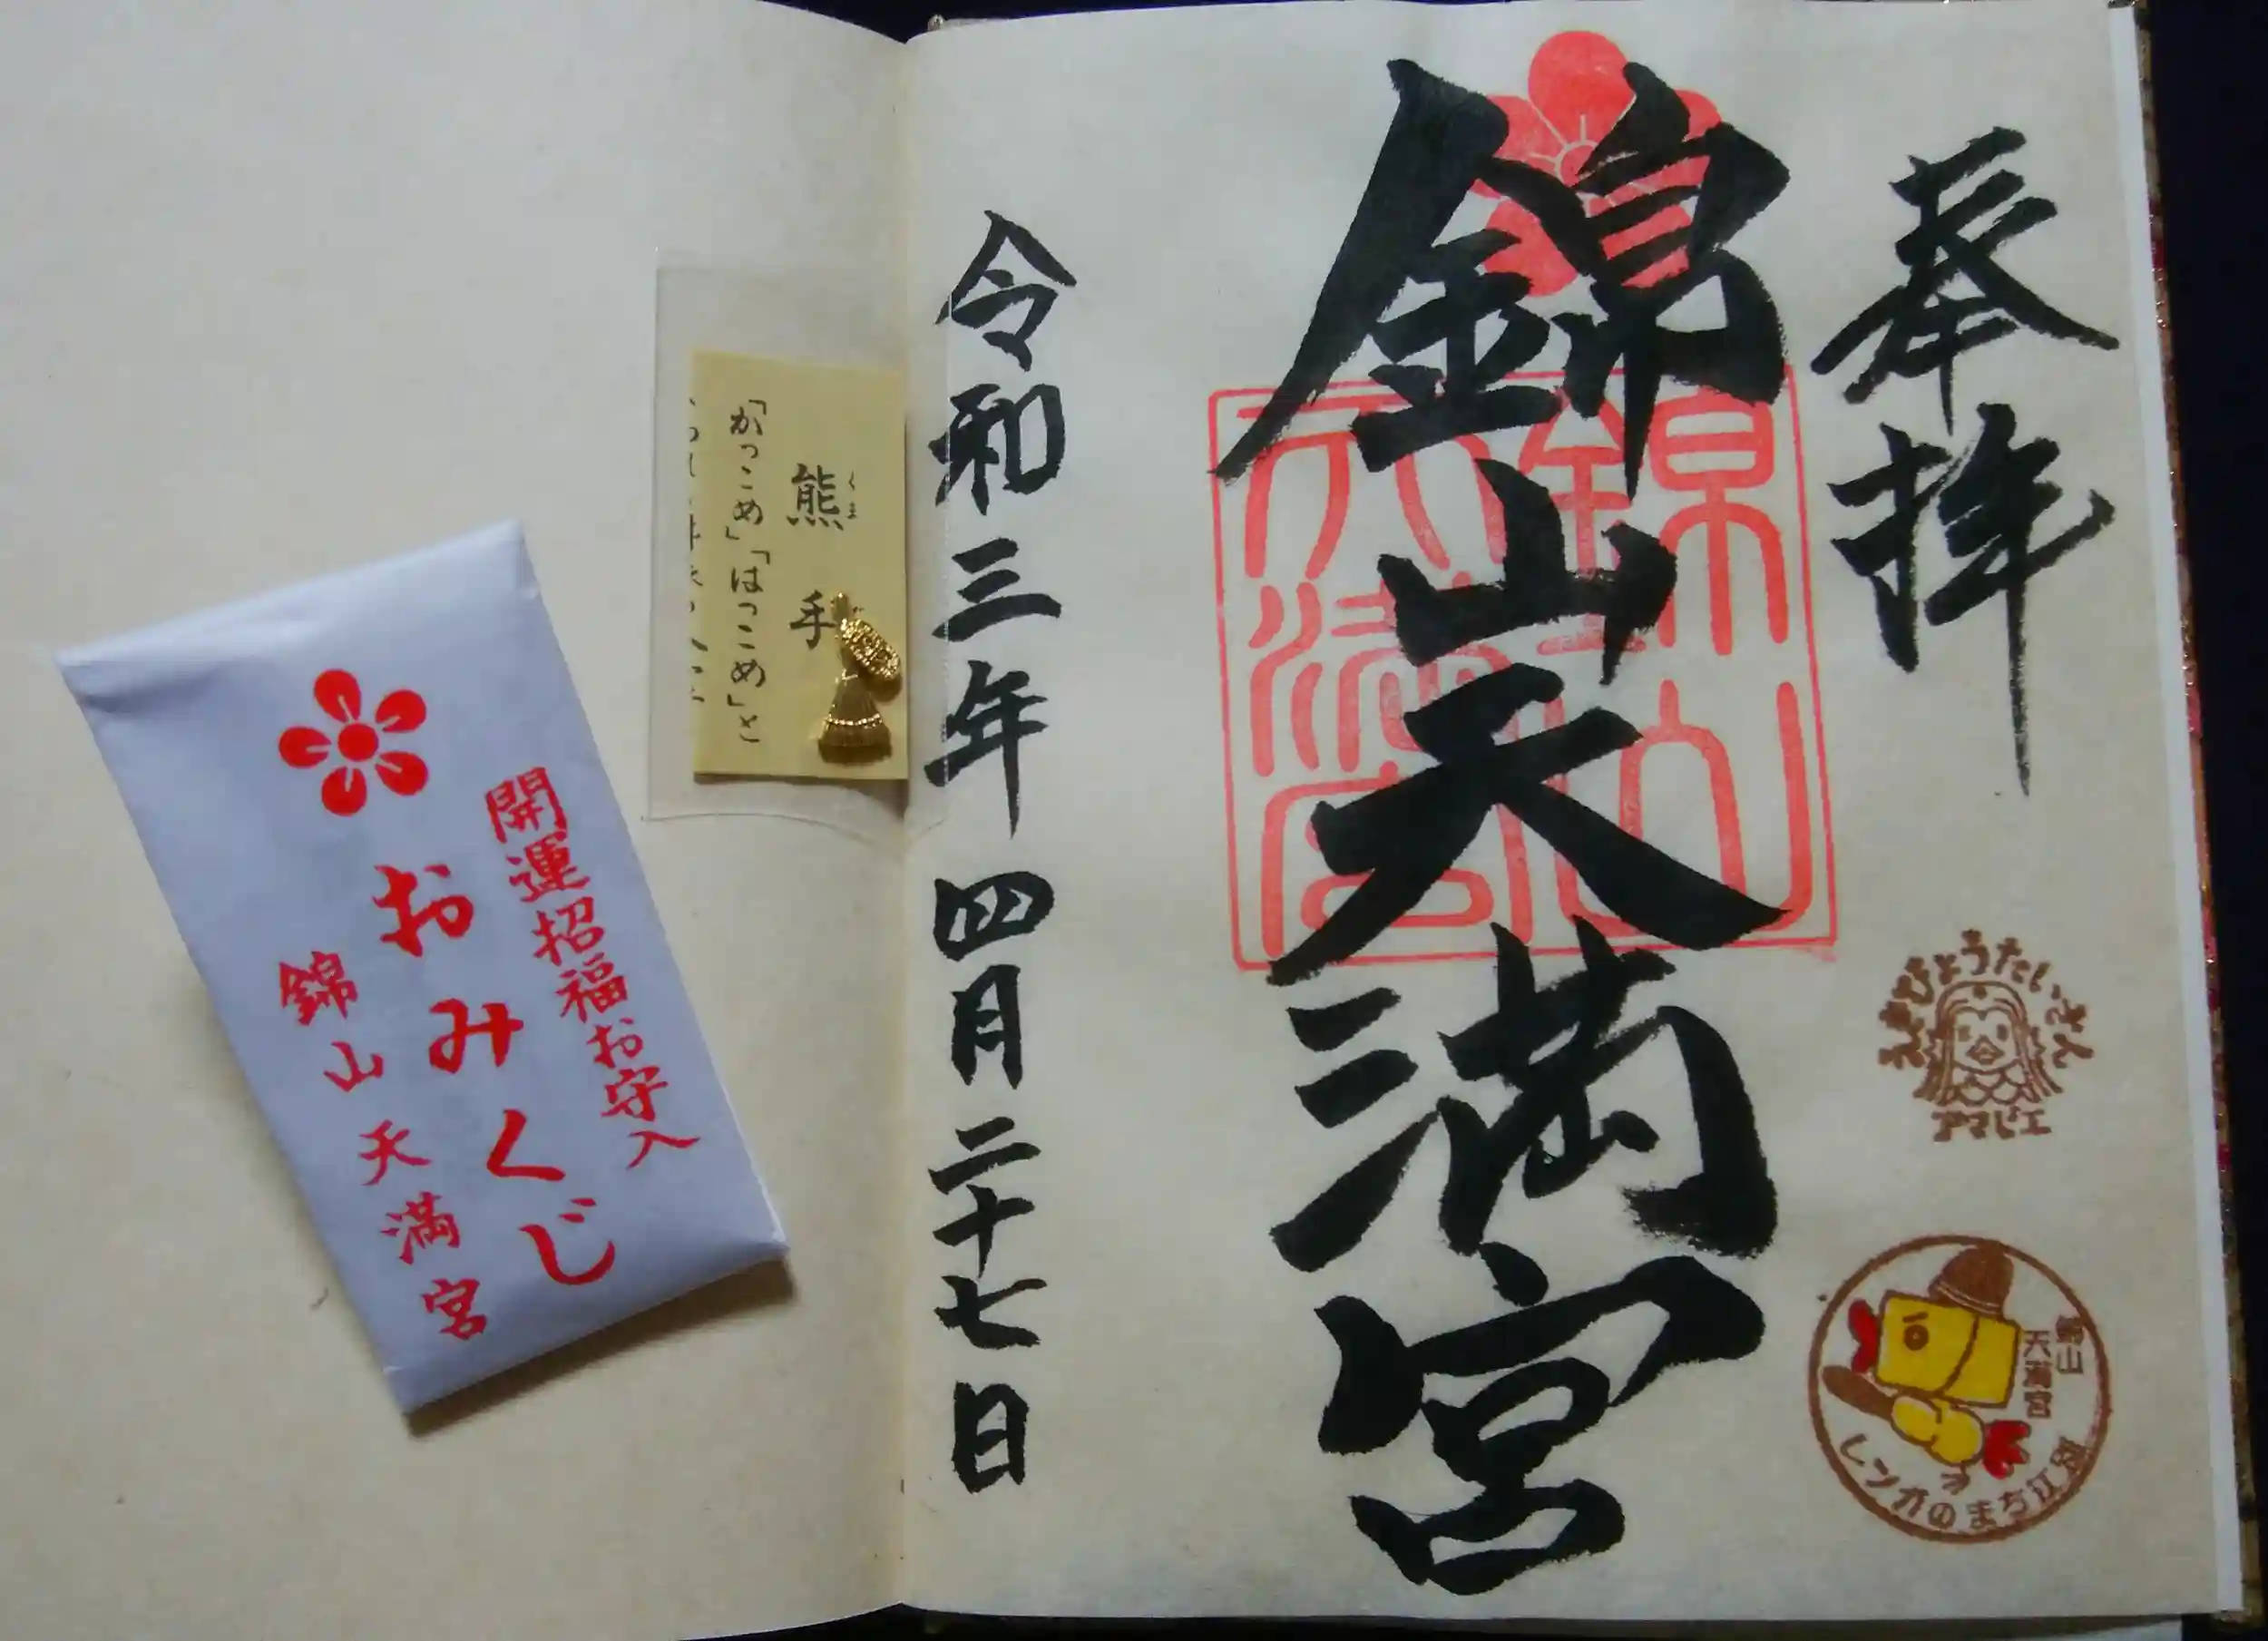 奉拝
錦山天満宮
錦山天満宮
令和三年四月二十七日
えきびょうたいさん
アマビエ
錦山
天満宮
レンガのまち江別
熊手
くま
「かっこめ」「はっこめ」と
開運招福お守入
おみくじ
錦山天満宮